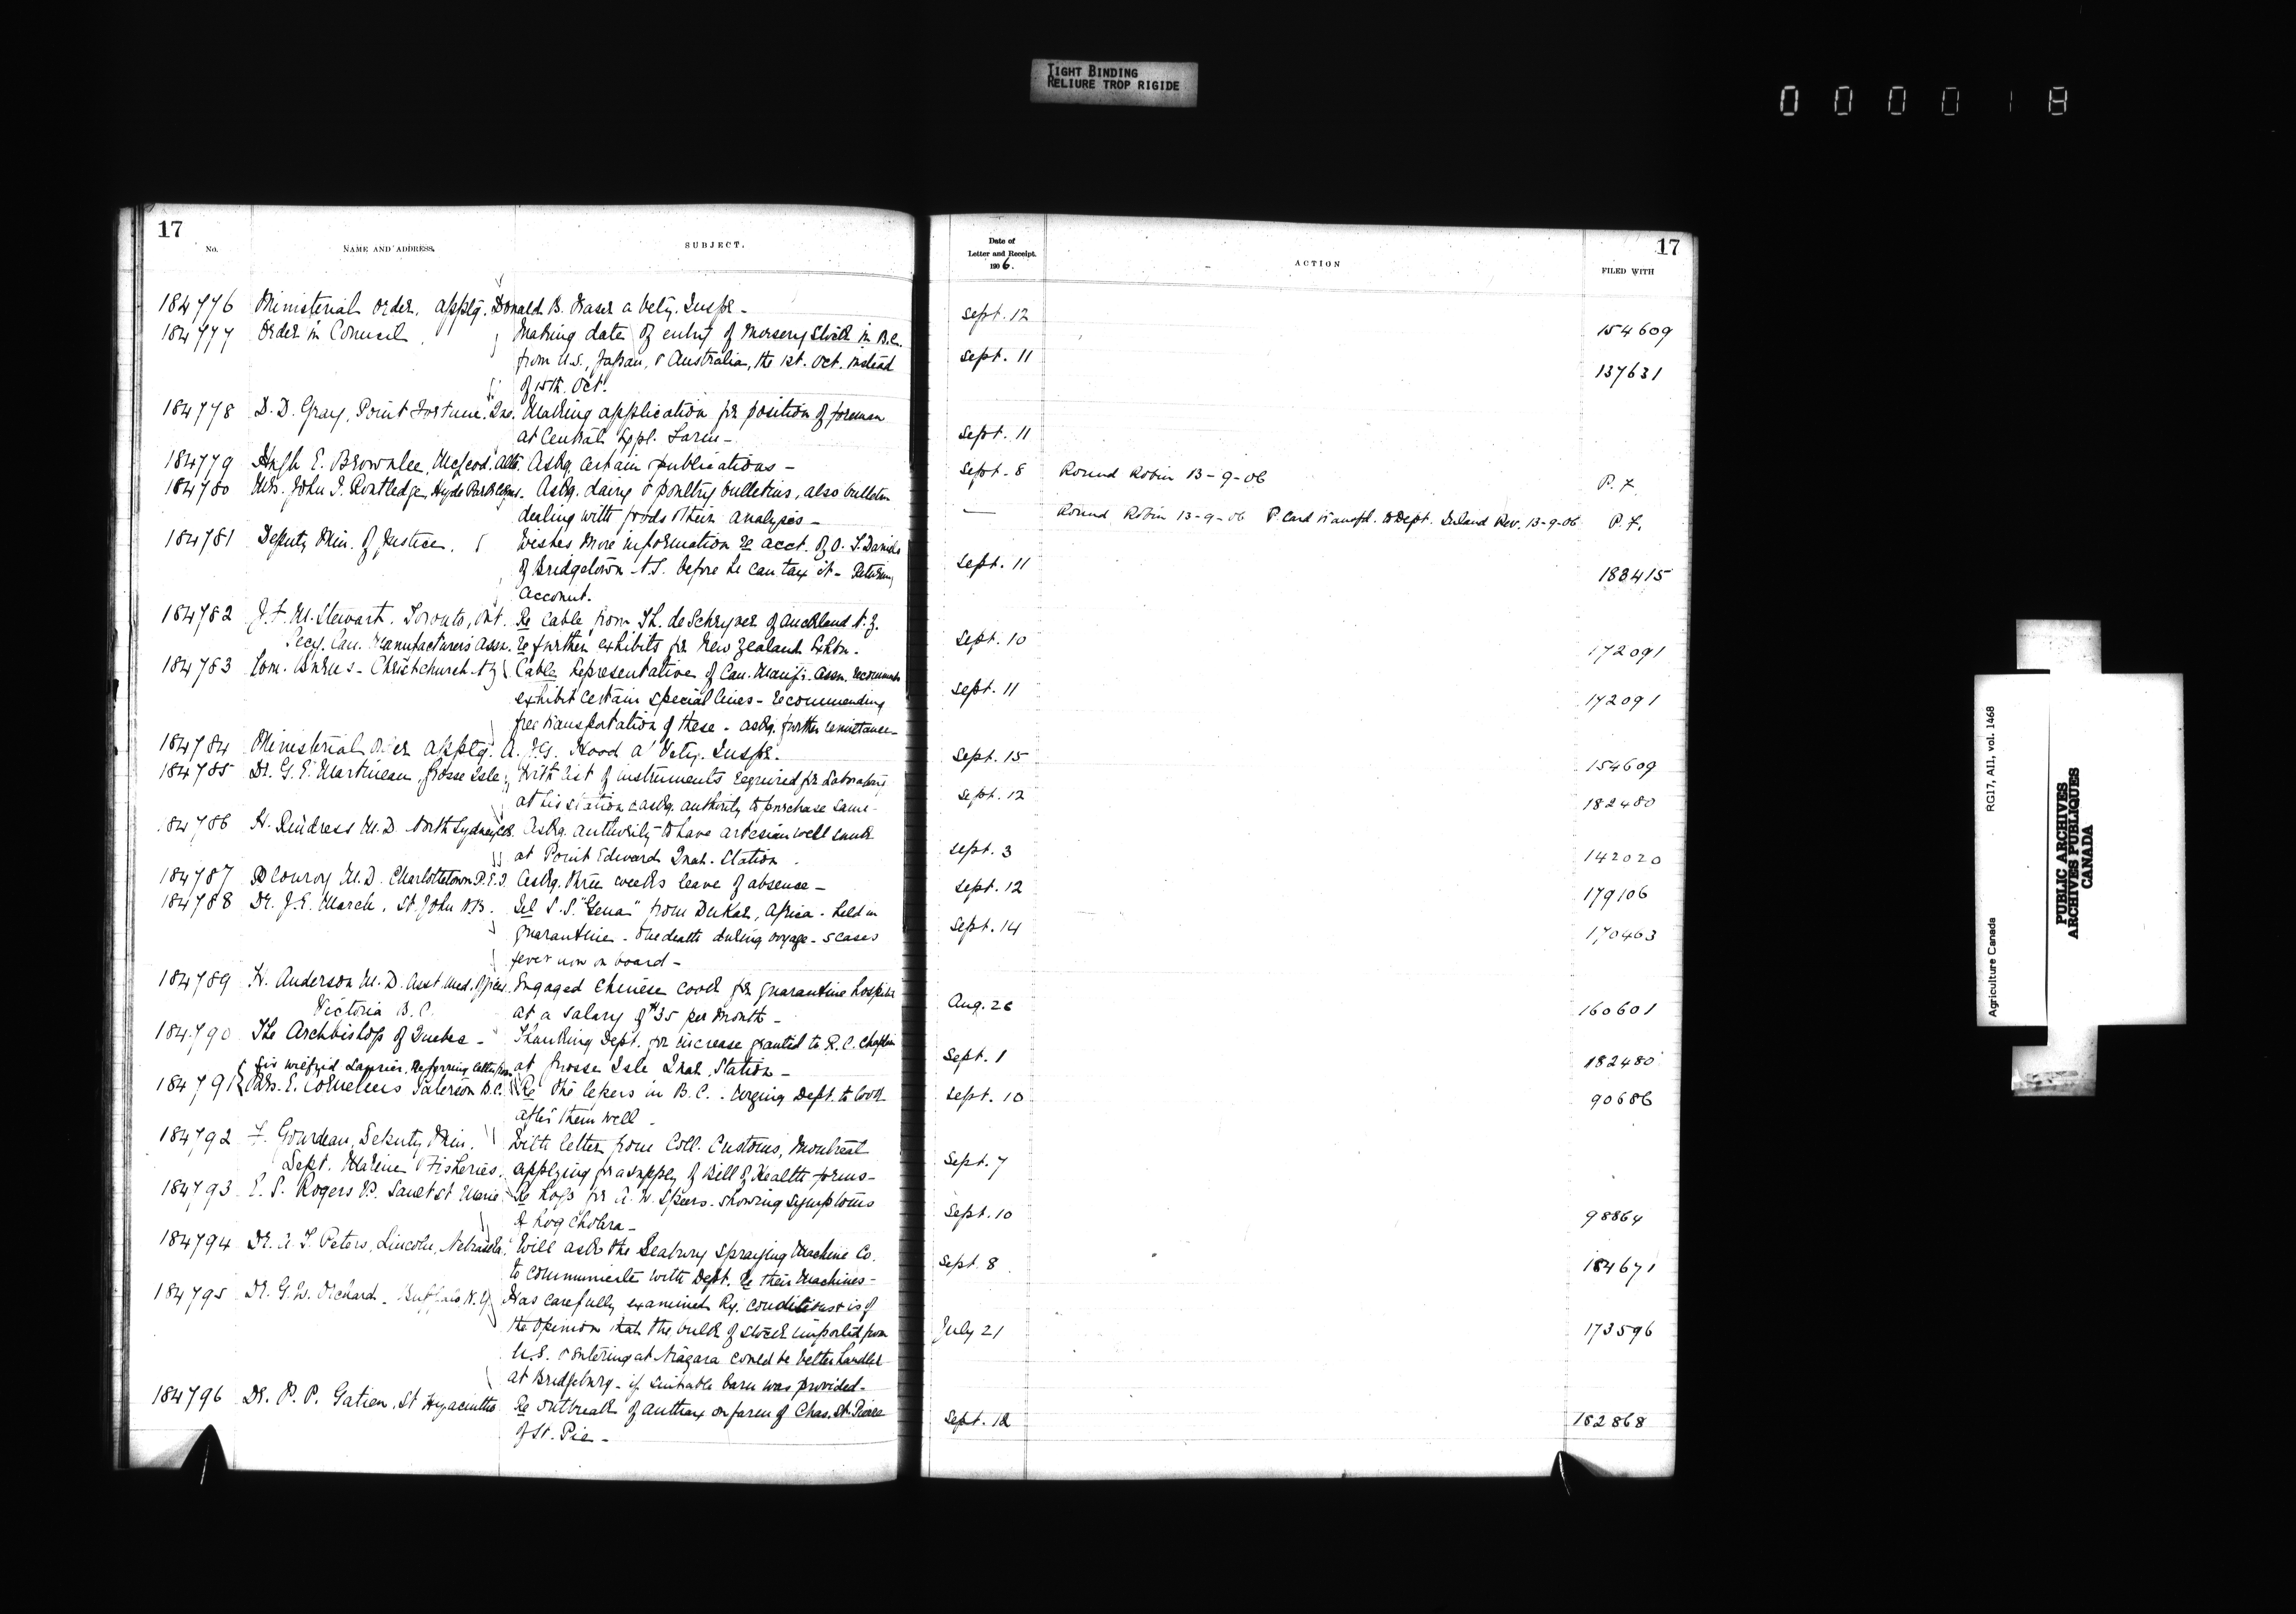 TIGHT BINDING
RELIURE TROP RIGIDE
0 0 0 0 1 8
17
No.
NAME AND ADDRESS.
SUBJECT.
184776 Ministerial Order, apptg. Donald B. Fraser a Vety. Inspr. -
184777 Order in Council Making date of entry of Nursery Stock in B.C.
from U.S., Japan, & Australia, the 1st. Oct. instead
of 15th. Oct.
184778 D. D. Gray, Point Fortune, Que. Making application for position of foreman
at Central Expl. Farm -
184779 Hugh E. Brownlee, McLeod, Alta. Askg. certain publications -
184780 Mrs. John I. Routledge, Hyde Park Askg. dairy & poultry bulletins, also bulletin
dealing with foods & their analysis -
184781 Deputy Min. of Justice. Wishes more information re acct. of O. T. Daniels
of Bridgetown N.S. before he can tax it - Returning
account.
184782 J. F. M. Stewart, Toronto, Ont. Re cable from Th. de Schryver of Auckland N.Z.
Secy. Can. Manufacturers Assn. re further exhibits for New Zealand Exhbn.
184783 Com. Burns - Christchurch N.Z. Cable Representative of Can. Manufrs. Assn. recommends
exhibit certain special lines - recommending
free transportation of these - askg. further remittance -
184784 Ministerial Order apptg. A. G. Hood a Vety. Inspr.
184785 Dr. G. E. Martineau, Grosse Isle, With list of instruments required for Laboratory
at his station & askg. authority to purchase same -
184786 H. Rindress M.D. North Sydney C.B. Askg. authority to have artesian well sunk
at Point Edward Qnah. Station
184787 Conroy M.D. Charlottetown P.E.I. Askg. three weeks leave of absence -
184788 Dr. J. E. March, St. John N.B. Tel S.S. "Gena" from Dukar, Africa - held in
quarantine - One death during voyage - 5 cases
fever now on board -
184789 H. Anderson M.D. Asst. Med. Officer, Engaged Chinese cook for quarantine hospital
Victoria B.C. at a salary of $35 per month -
184790 The Archbishop of Quebec - Thanking Dept. for increase granted to R. C. Chaplain
at Grosse Isle Qnah. Station -
Sir Wilfrid Laurier, Referring letter from
184791 Mrs. E. Cornelius Paterson B.C. Re the lepers in B.C. - Urging Dept. to look
after them well -
184792 F. Gourdeau, Deputy Min. With letter from Coll. Customs, Montreal
Dept. Marine & Fisheries, applying for a supply of Bill of Health forms -
184793 E. S. Rogers V.S. Sault St Marie Re hogs for A. W. Speers - showing symptoms
of hog cholera -
184794 Dr. A. T. Peters, Lincoln, Nebraska, Will ask the Seabury Spraying Machine Co.
to communicate with Dept. re their machines -
184795 Dr. G. W. Orchard - Buffalo N.Y. Has carefully examined Ry. conditions & is of
the opinion that the bulk of stock imported from
U.S. & entering at Niagara could be better handled
at Bridgeburg - if suitable barn was provided -
184796 Dr. P. P. Gatien, St Hyacinthe Re outbreak of anthrax on farm of Chas. St. Pierre
of St. Pie -
Date of
Letter and Receipt.
1906.
ACTION
17
FILED WITH
Sept. 12 154609
Sept. 11 137631
Sept. 11
Sept. 8 Round Robin 13-9-06 P. F.
— Round Robin 13-9-06 P. Card transfd. to Dept. Inland Rev. 13-9-06 P. F.
Sept. 11 183415
Sept. 10 172091
Sept. 11 172091
Sept. 15 154609
Sept. 12 182480
Sept. 3 142020
Sept. 12 179106
Sept. 14 170463
Aug. 26 160601
Sept. 1 182480
Sept. 10 90686
Sept. 7
Sept. 10 98864
Sept. 8 184671
July 21 173596
Sept. 12 182868
Agriculture Canada
RG17, AI1, vol. 1468
PUBLIC ARCHIVES
ARCHIVES PUBLIQUES
CANADA